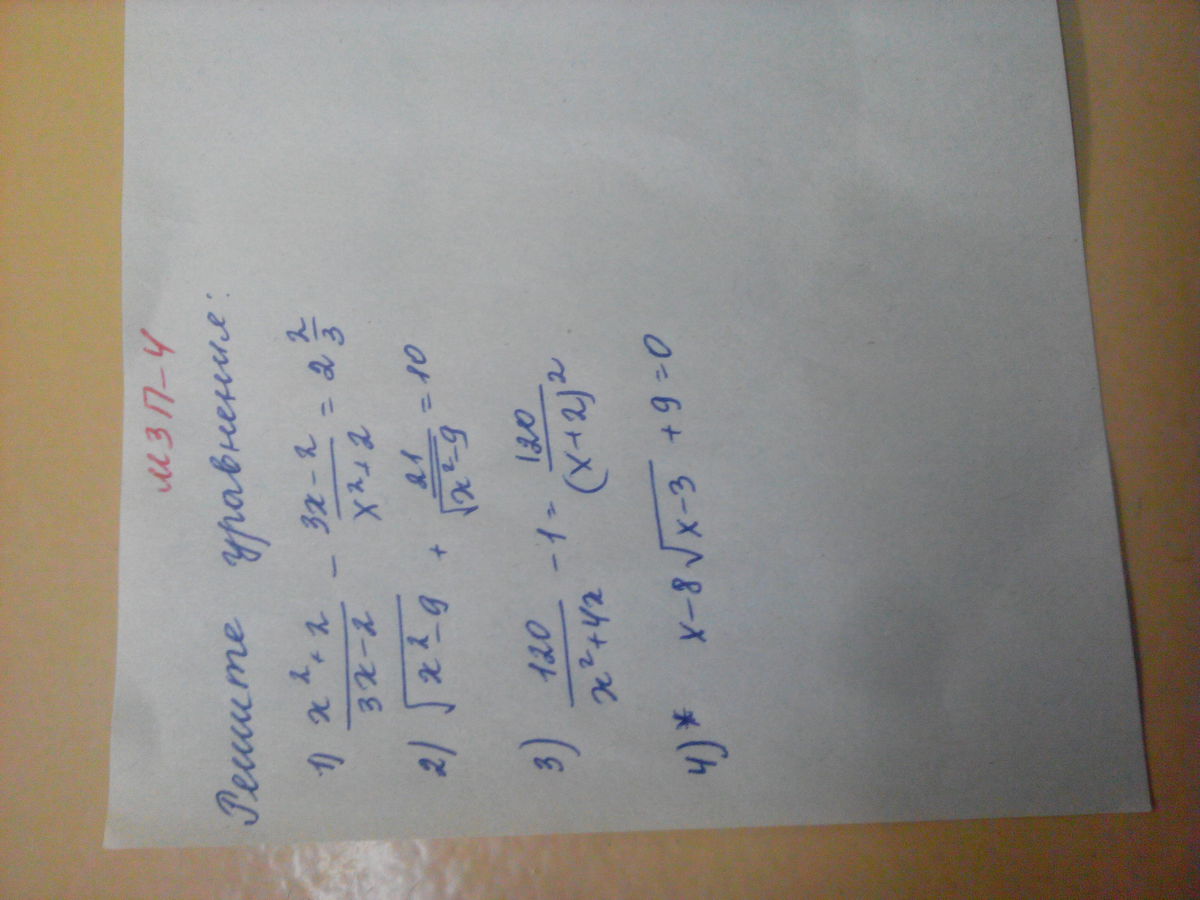 МЗП-4
Решите уравнения:
1) (x²+2)/(3x-2) - (3x-2)/(x²+2) = 2 2/3
2) √(x²-9) + 21/√(x²-9) = 10
3) 120/(x²+4x) - 1 = 120/(x+2)²
4)* x-8√(x-3) + 9=0